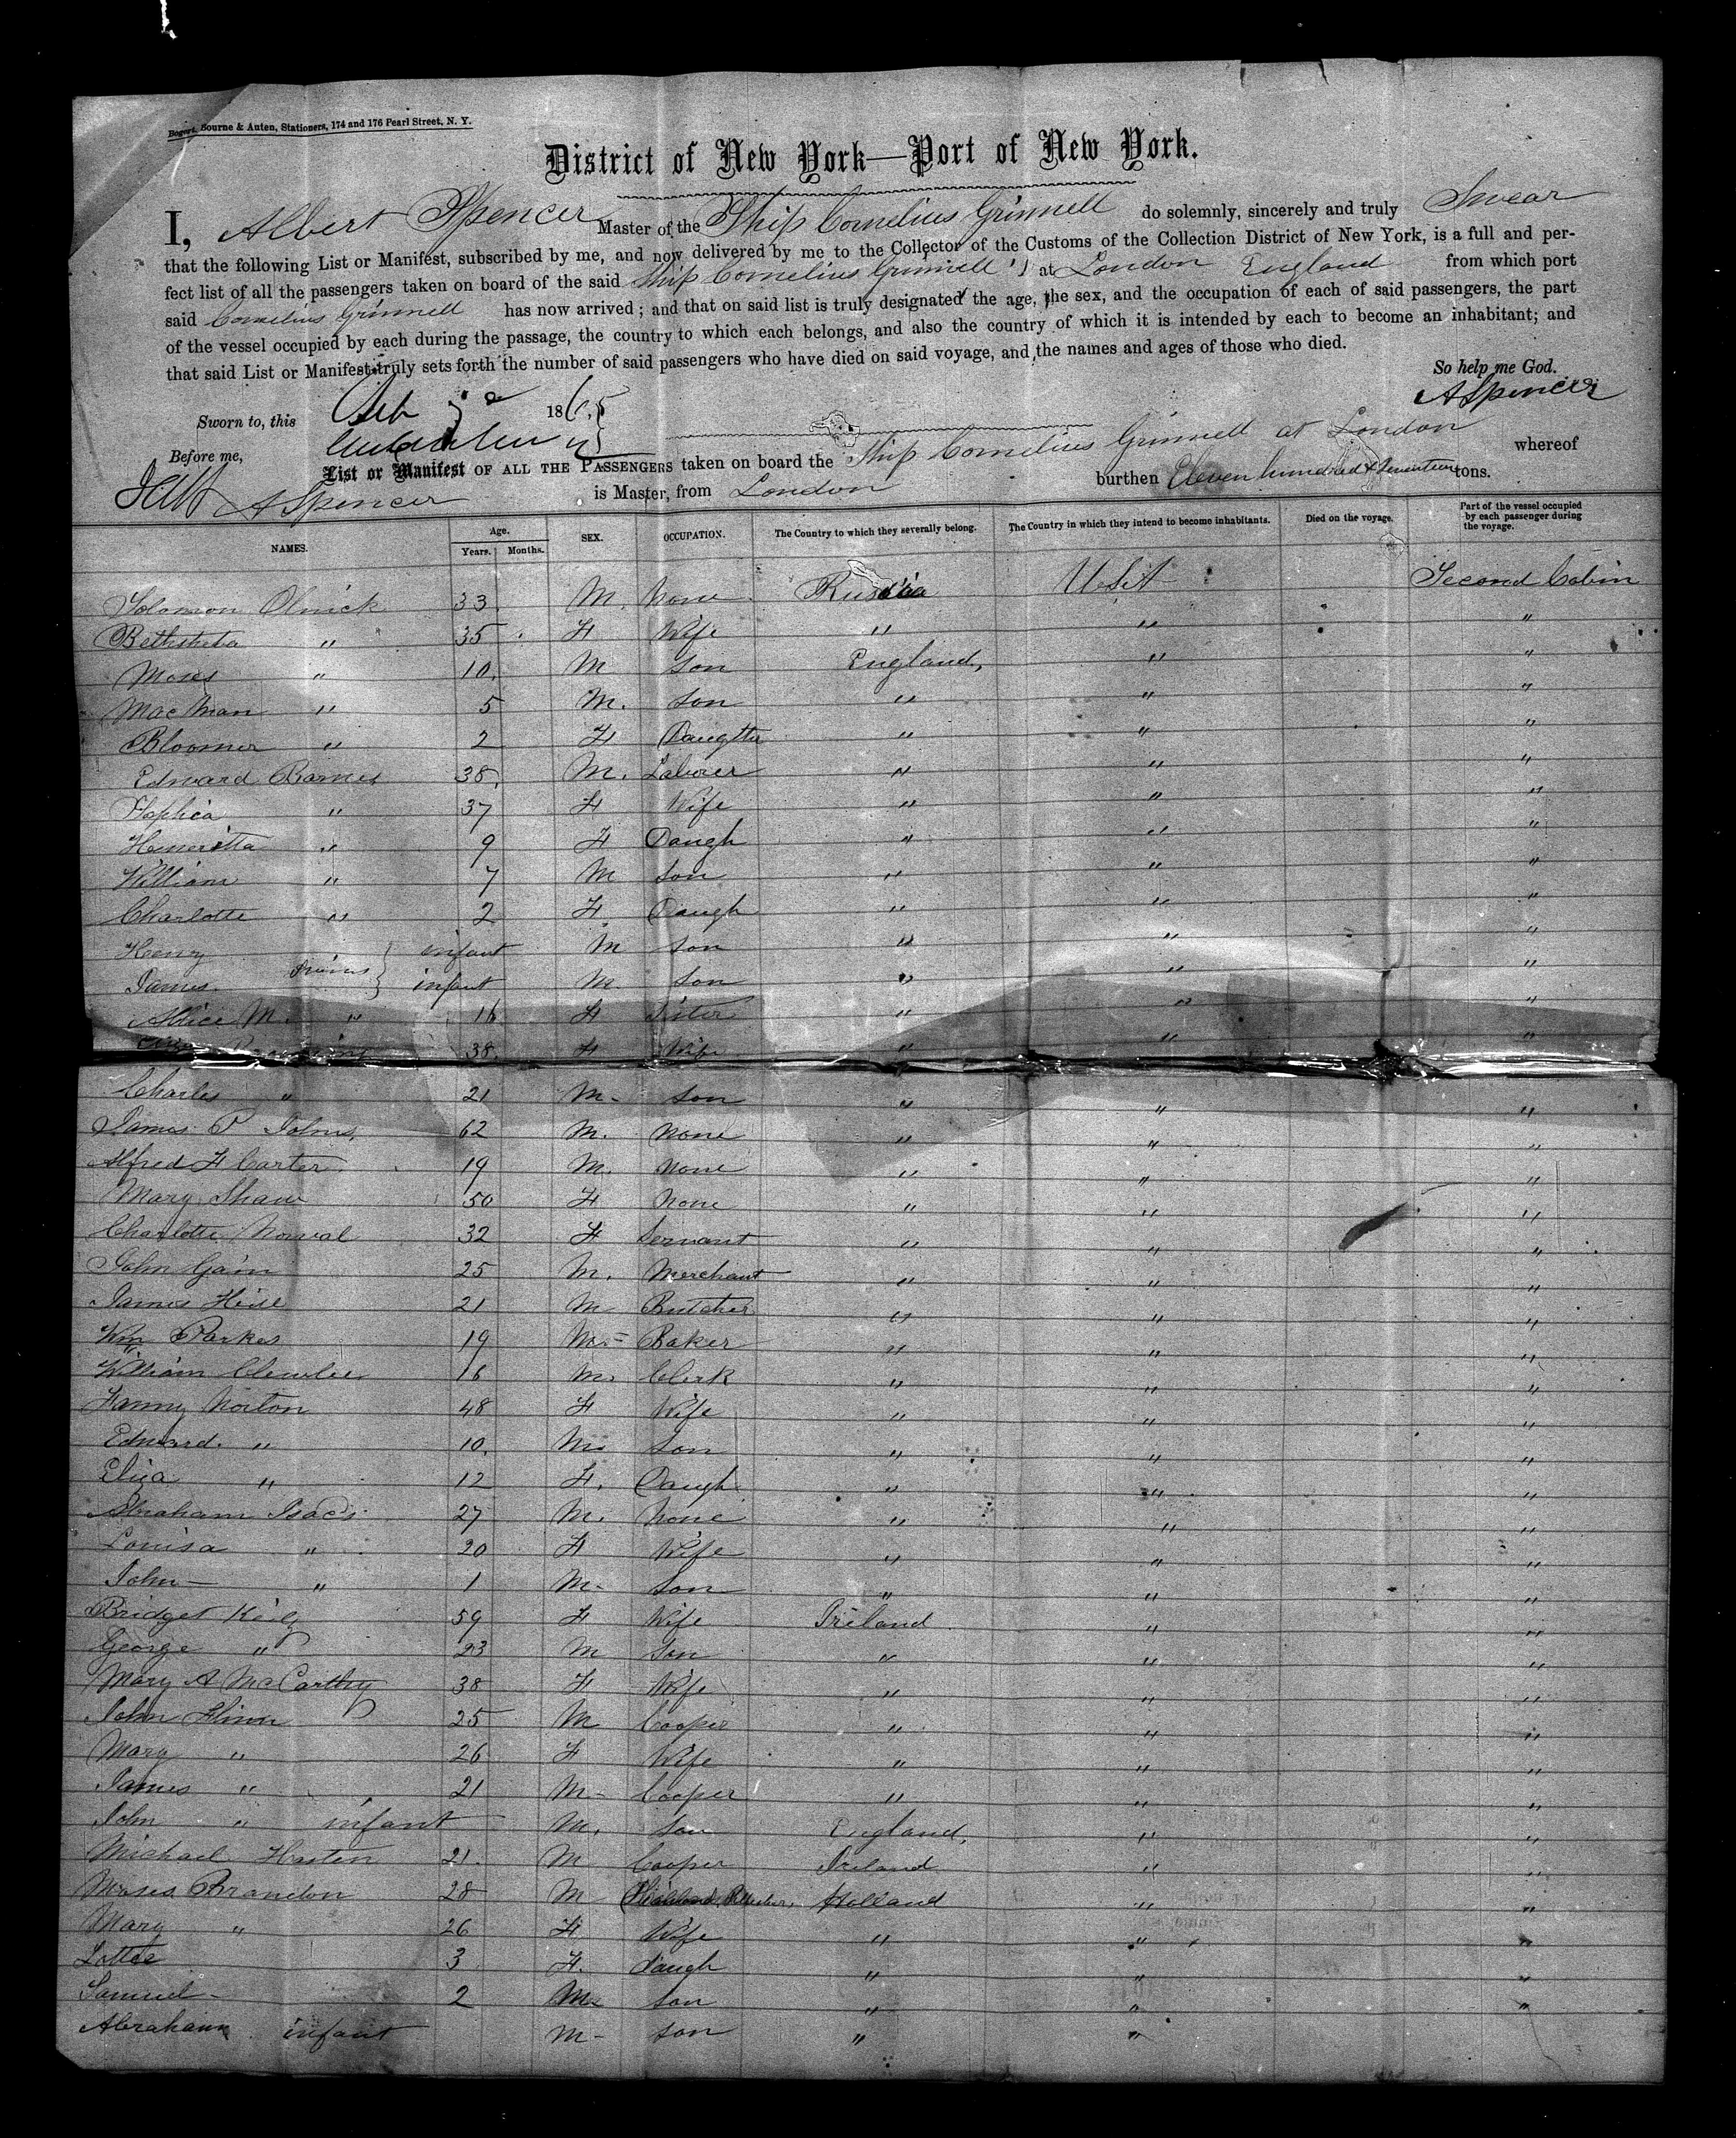 Bogert, Bourne & Auten, Stationers, 174 and 176 Pearl Street, N. Y.
District of New York—Port of New York.
I, Albert Spencer Master of the Ship Cornelius Grinnell do solemnly, sincerely and truly Swear
that the following List or Manifest, subscribed by me, and now delivered by me to the Collector of the Customs of the Collection District of New York, is a full and per-
fect list of all the passengers taken on board of the said Ship Cornelius Grinnell at London England from which port
said Cornelius Grinnell has now arrived; and that on said list is truly designated the age, the sex, and the occupation of each of said passengers, the part
of the vessel occupied by each during the passage, the country to which each belongs, and also the country of which it is intended by each to become an inhabitant; and
that said List or Manifest truly sets forth the number of said passengers who have died on said voyage, and the names and ages of those who died.
So help me God.
A Spencer
Sworn to, this Feb 1865
Before me,
List or Manifest OF ALL THE PASSENGERS taken on board the Ship Cornelius Grinnell at London whereof
A Spencer is Master, from London burthen Eleven hundred & Seventeen tons.
NAMES. Age. Years. Months. SEX. OCCUPATION. The Country to which they severally belong. The Country in which they intend to become inhabitants. Died on the voyage. Part of the vessel occupied by each passenger during the voyage.
Solomon 33 M. None Russia USA Second Cabin
Bethsheba " 35 F Wife " " "
Moses " 10 M Son England, " "
Mac Man " 5 M. Son " " "
Bloomer " 2 F Daugtter " " "
Edward Barnes 38 M. Laborer " " "
Sophia " 37 F Wife " " "
Henerietta " 9 F Daugh " " "
William " 7 M Son " " "
Charlotte " 2 F. Daugh " " "
Henry infant M Son " " "
James infant M. Son " " "
Allice M. " 16 F Sister " " "
38 F Wife " " "
Charles " 21 M. Son " " "
James P Johns 62 M. None " " "
Alfred F Carter 19 M. None " " "
Mary Shaw 50 F None " " "
Charlotte Norval 32 F Servant " " "
John Gain 25 M. Merchant " " "
James 21 M Butcher " " "
Wm Parkes 19 M. Baker " " "
William 16 M. Clerk " " "
Fanny Norton 48 F Wife " " "
Edward " 10. M. Son " " "
Eliza " 12 F. Daugh " " "
Abraham Isacs 27 M. None " " "
Louisa " 20 F Wife " " "
John — " 1 M. Son " " "
Bridget Keily 59 F Wife Ireland " "
George " 23 M Son " " "
Mary A McCarthy 38 F Wife " " "
John Flinn 25 M Cooper " " "
Mary " 26 F Wife " " "
James " 21 M. Cooper " " "
John " infant M. Son England, " "
Michael Hasten 21. M Cooper Ireland " "
Moses Brandon 28 M Holland " "
Mary " 26 F Wife " " "
Lottie 3 F. daugh " " "
Samuel 2 M. Son " " "
Abraham infant M Son " "